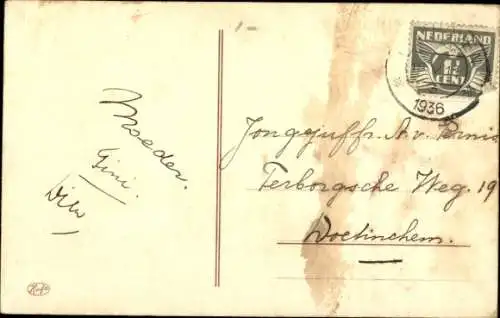 1-
NEDERLAND
1½
CENT
1936
Moeder.
Gini.
Wim
Jongejuffr. A. v.
Terborgsche Weg. 19
Doetinchem.